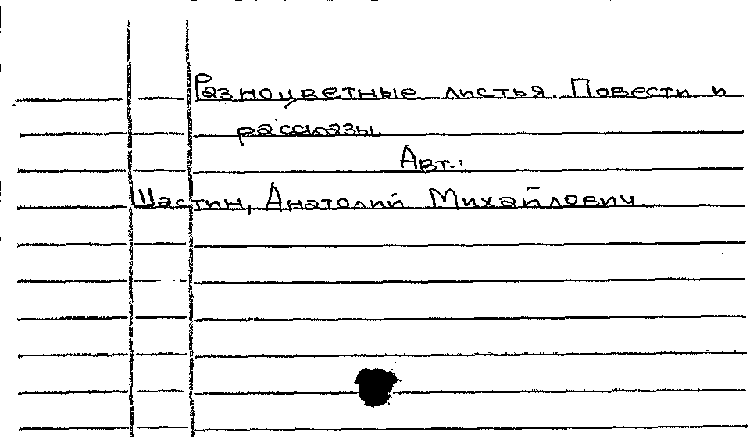 Разноцветные листья. Повести и
рассказы
Авт.:
Шастин, Анатолий Михайлович